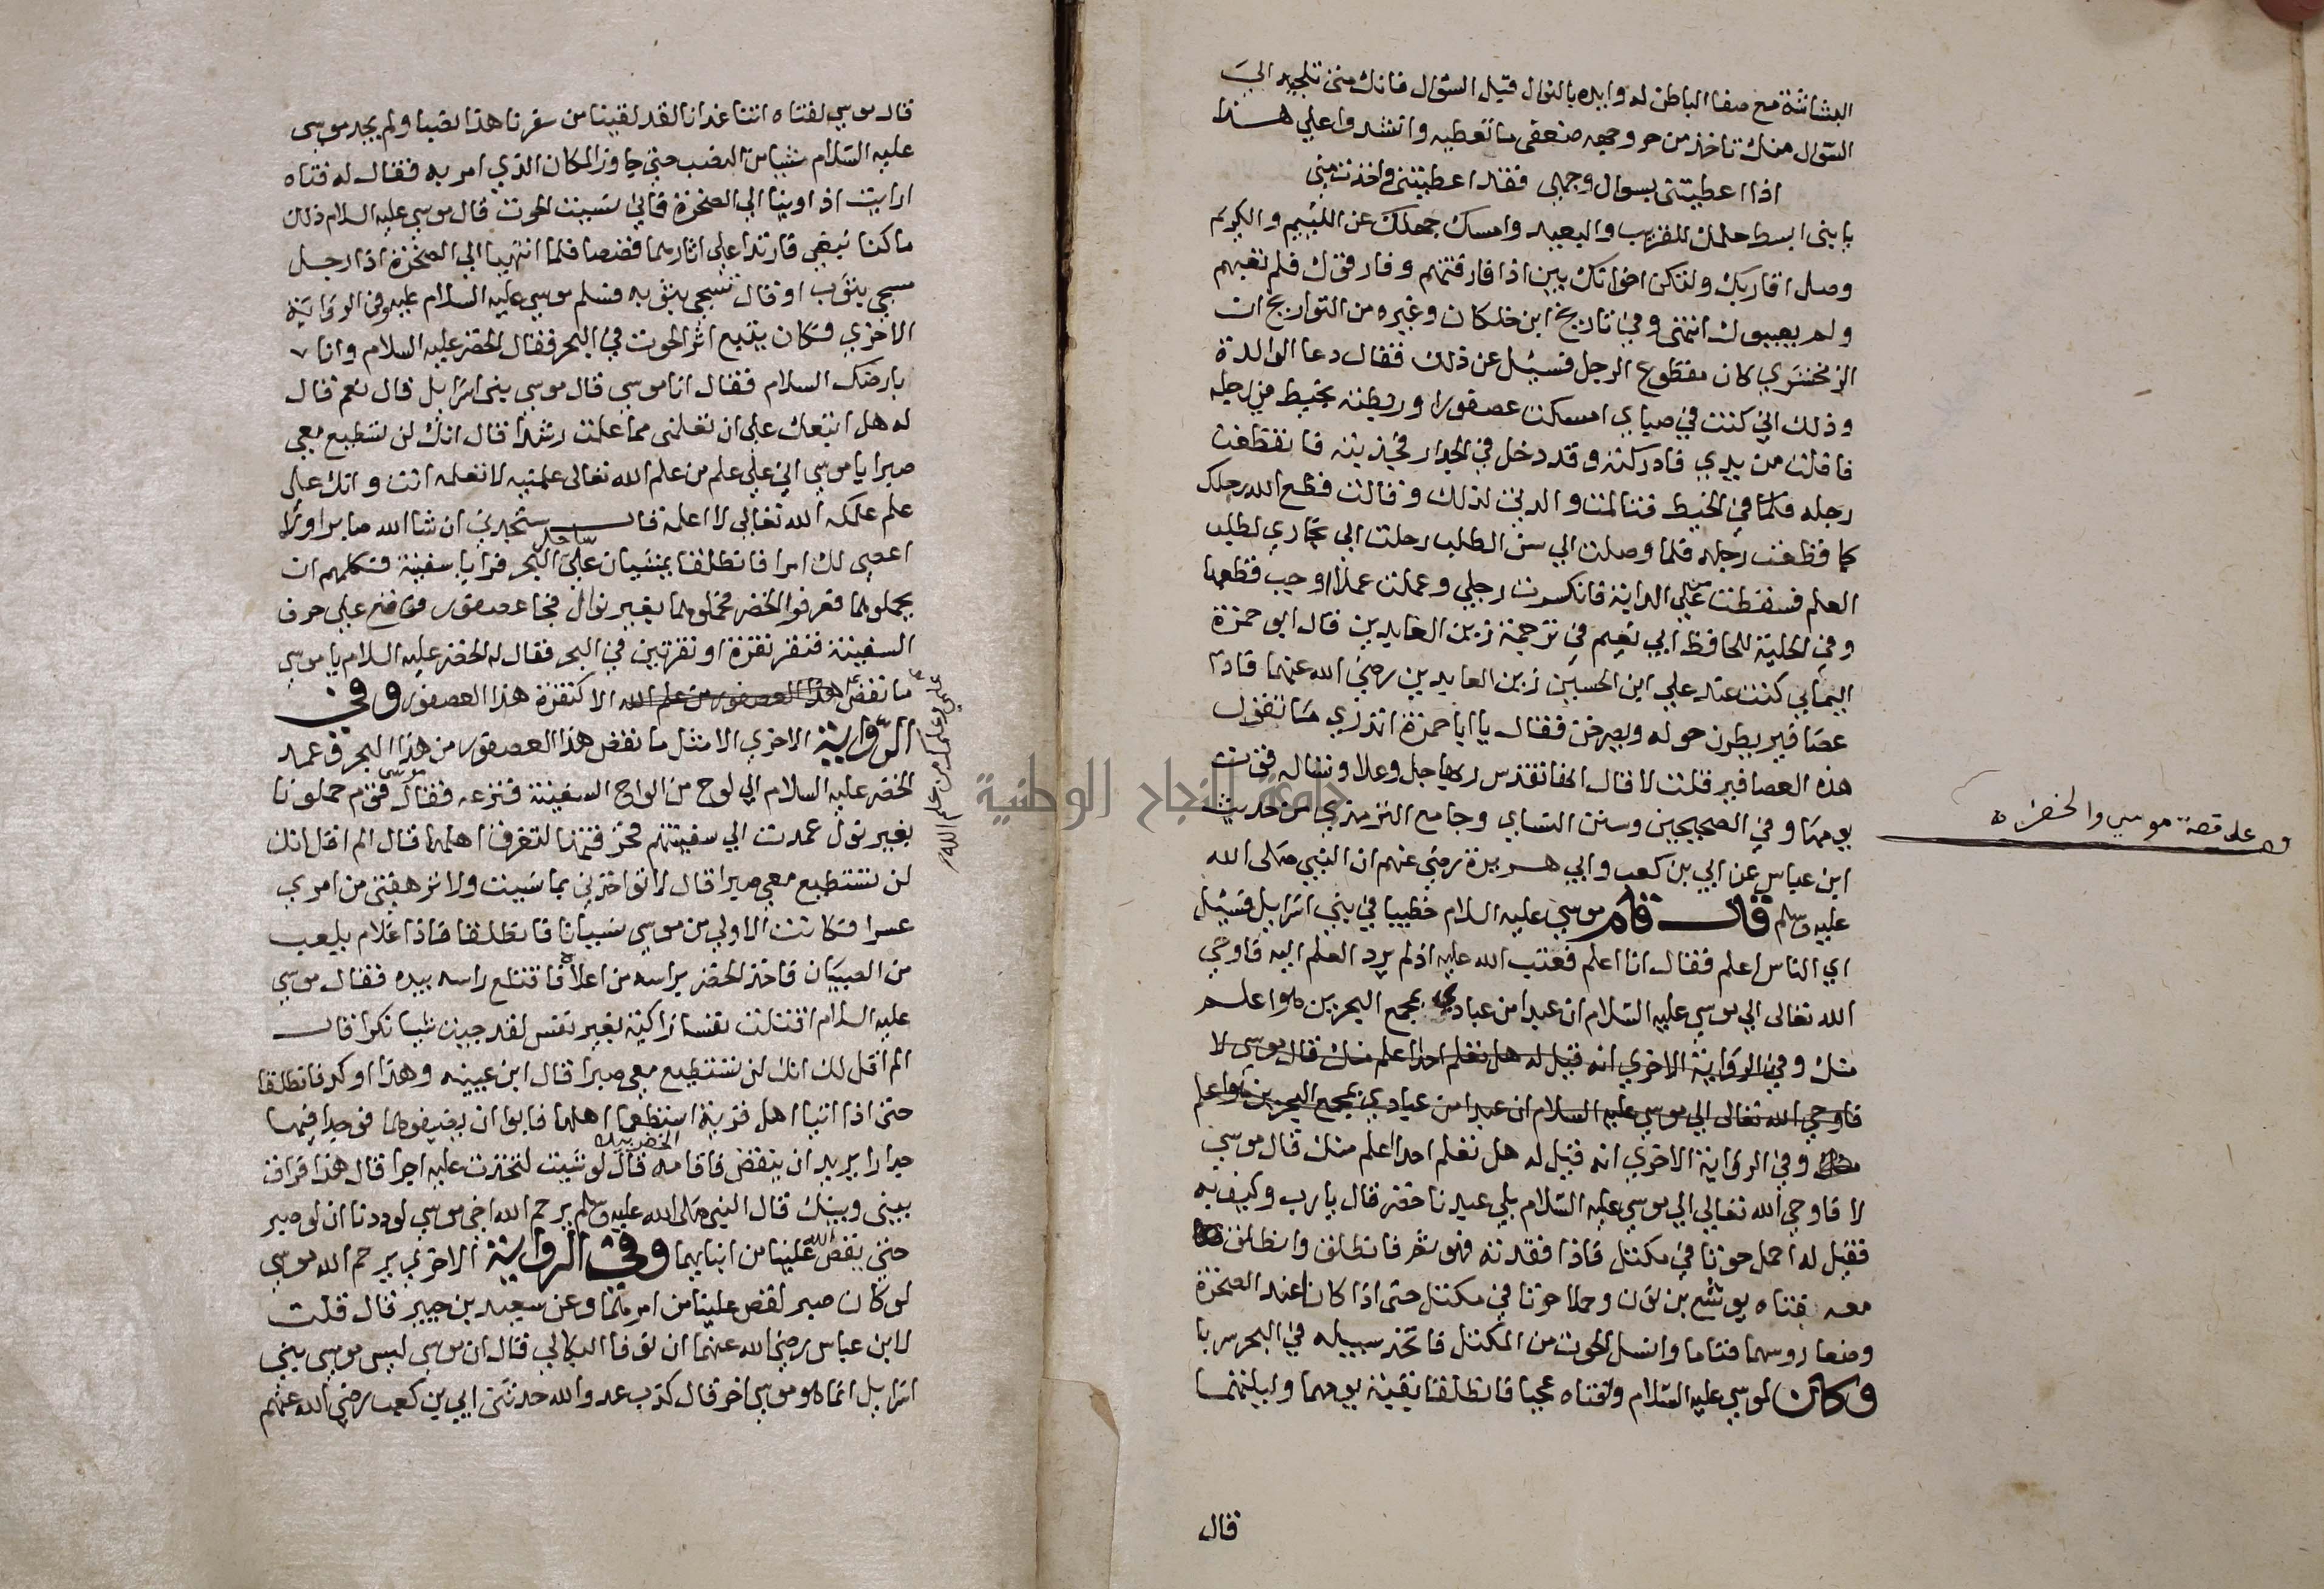 البشاشة مع صفا الباطن له وابده بالنوال قبل السوال فانك متى تلجيه الى
السوال منك تاخذ من حر وجهه ضعفى ما تعطيه وانشدوا على هذا
اذا اعطيتنى بسوال وجهى فقد اعطيتنى واخذت منى
يا بنى ابسط حلمك للقريب والبعيد وامسك جهلك عن اللئيم والكريم
وصل اقاربك ولتكن اخوانك من اذا فارقتهم وفارقوك فلم تعبهم
ولم يعيبوك انتهى وفي تاريخ ابن خلكان وغيره من التواريخ ان
الزمخشري كان مقطوع الرجل فسيل عن ذلك فقال دعا الوالدة
وذلك اني كنت في صباي امسكت عصفورا وربطته بخيط في رجله
فافلت من يدي فادركته وقد دخل في الجدار فجذبته فانقطعت
رجله في الخيط فتالمت والدتي لذلك وقالت قطع الله رجلك
كما قطعت رجله فلما وصلت الى سن الطلب رحلت الى بخاري لطلب
العلم فسقطت عن الدابة فانكسرت رجلي وعملت عملا اوجب قطعها
وفي الحلية للحافظ ابي نعيم في ترجمة زين العابدين قال ابو حمزة
اليماني كنت عند علي ابن الحسين زين العابدين رضي الله عنهما فاذا
عصافير يطرن حوله ويصرخن فقال يا ابا حمزة اتدري ما تقول
هذه العصافير فقلت لا قال انها تقدس ربها جل وعلا وتساله قوت
يومها وفي الصحيحين وسنن النساي وجامع الترمذي من حديث
ابن عباس عن ابي بن كعب وابي هريرة رضي عنهم ان النبي صلى الله
عليه وسلم قال قام موسي عليه السلام خطيبا في بني اسرايل فسيل
اي الناس اعلم فقال انا اعلم فعتب الله عليه اذ لم يرد العلم اليه فاوحي
الله تعالى الي موسي عليه السلام ان عبدا من عبادي بمجمع البحرين هو اعلم
منك وفي الرواية الاخري انه قيل له هل تعلم احدا اعلم منك قال موسي لا
فاوحي الله تعالى الي موسي عليه السلام ان عبدا من عبادي بمجمع البحرين هو اعلم
وفي الرواية الاخري انه قيل له هل تعلم احدا اعلم منك قال موسي
لا فاوحي الله تعالي الي موسي عليه السلام بلي عبدنا خضر قال يا رب وكيف به
فقيل له احمل حوتا في مكتل فاذا فقدته فهو ثم فانطلق وانطلق
معه فتاه يوشع بن نون وحملا حوتا في مكتل حتى اذا كانا عند الصخرة
وضعا روسهما فناما وانسل الحوت من المكتل فاتخذ سبيله في البحر سربا
وكان لموسي عليه السلام ولفتاه عجبا فانطلقا بقية يومهما وليلتهما
قال
علي قصة موسي والخضر
قال موسي لفتاه اتنا غدانا لقد لقينا من سفرنا هذا نصبا ولم يجد موسى
عليه السلام شيا من النصب حتي جاوز المكان الذي امر به فقال له فتاه
ارايت اذ اوينا الي الصخرة فاني نسيت الحوت قال موسي عليه السلام ذلك
ما كنا نبغي فارتدا علي اثارهما قصصا فلما انتهيا الي الصخرة اذا رجل
مسجي بثوب او قال تسجي بثوبه فسلم موسي عليه السلام عليه وفي الرواية
الاخري وكان يتبع اثر الحوت في البحر فقال الخضر عليه السلام وانا
بارضك السلام فقال انا موسي قال موسي بني اسرايل قال نعم قال
له هل اتبعك علي ان تعلمني مما علمت رشدا قال انك لن تسطيع معي
صبرا يا موسي اني علي علم من علم الله تعالى علمنيه لا تعلمه انت وانك علي
علم علمكه الله تعالى لا اعلمه قال ستجدني ان شا الله صابرا ولا
اعصي لك امرا فانطلقا يمشيان علي ساحل البحر فرايا سفينة فكلمهم ان
يحملوهما فعرفوا الخضر فحملوهما بغير نوال فجا عصفور فوقع علي حرف
السفينة فنقر نقرة او نقرتين في البحر فقال له الخضر عليه السلام يا موسي
ما نقص هذا العصفور من علم الله الا كنقرة هذا العصفور وفي
علمي وعلمك من علم الله
الرواية الاخري الا مثل ما نقص هذا العصفور من هذا البحر فعمد
الخضر عليه السلام الي لوح من الواح السفينة فنزعه فقال موسى قوم حملونا
بغير نول عمدت الي سفينتهم فخرقتها لتغرق اهلها قال الم اقل انك
لن تستطيع معي صبرا قال لا تواخذني بما نسيت ولا ترهقني من امري
عسرا فكانت الاولي من موسي نسيانا فانطلقا فاذا غلام يلعب
من الصبيان فاخذ الخضر براسه من اعلاه فاقتلع راسه بيده فقال موسي
عليه السلام اقتلت نفسا زاكية بغير نفس لقد جيت شيا نكرا قال
الم اقل لك انك لن تستطيع معي صبرا قال ابن عيينه وهذا اوكد فانطلقا
حتى اذا اتيا اهل قرية استطعما اهلها فابوا ان يضيفوهما فوجدا فيها
جدارا يريد ان ينقض فاقامه الخضر بيده قال لو شيت لتخذت عليه اجرا قال هذا فراق
بيني وبينك قال النبي صلى الله عليه وسلم يرحم الله اخي موسي لوددنا ان لو صبر
حتى يقص الله علينا من انبايهما وفي الرواية الاخري يرحم الله موسي
لو كان صبر لقص علينا من امرهما وعن سعيد بن جبير قال قلت
لابن عباس رضي الله عنهما ان نوفا البكالي قال ان موسي ليس موسي بني
اسرايل انما هو موسي اخر قال كذب عدو الله حدثني ابي بن كعب رضي الله عنهم
جامعة النجاح الوطنية